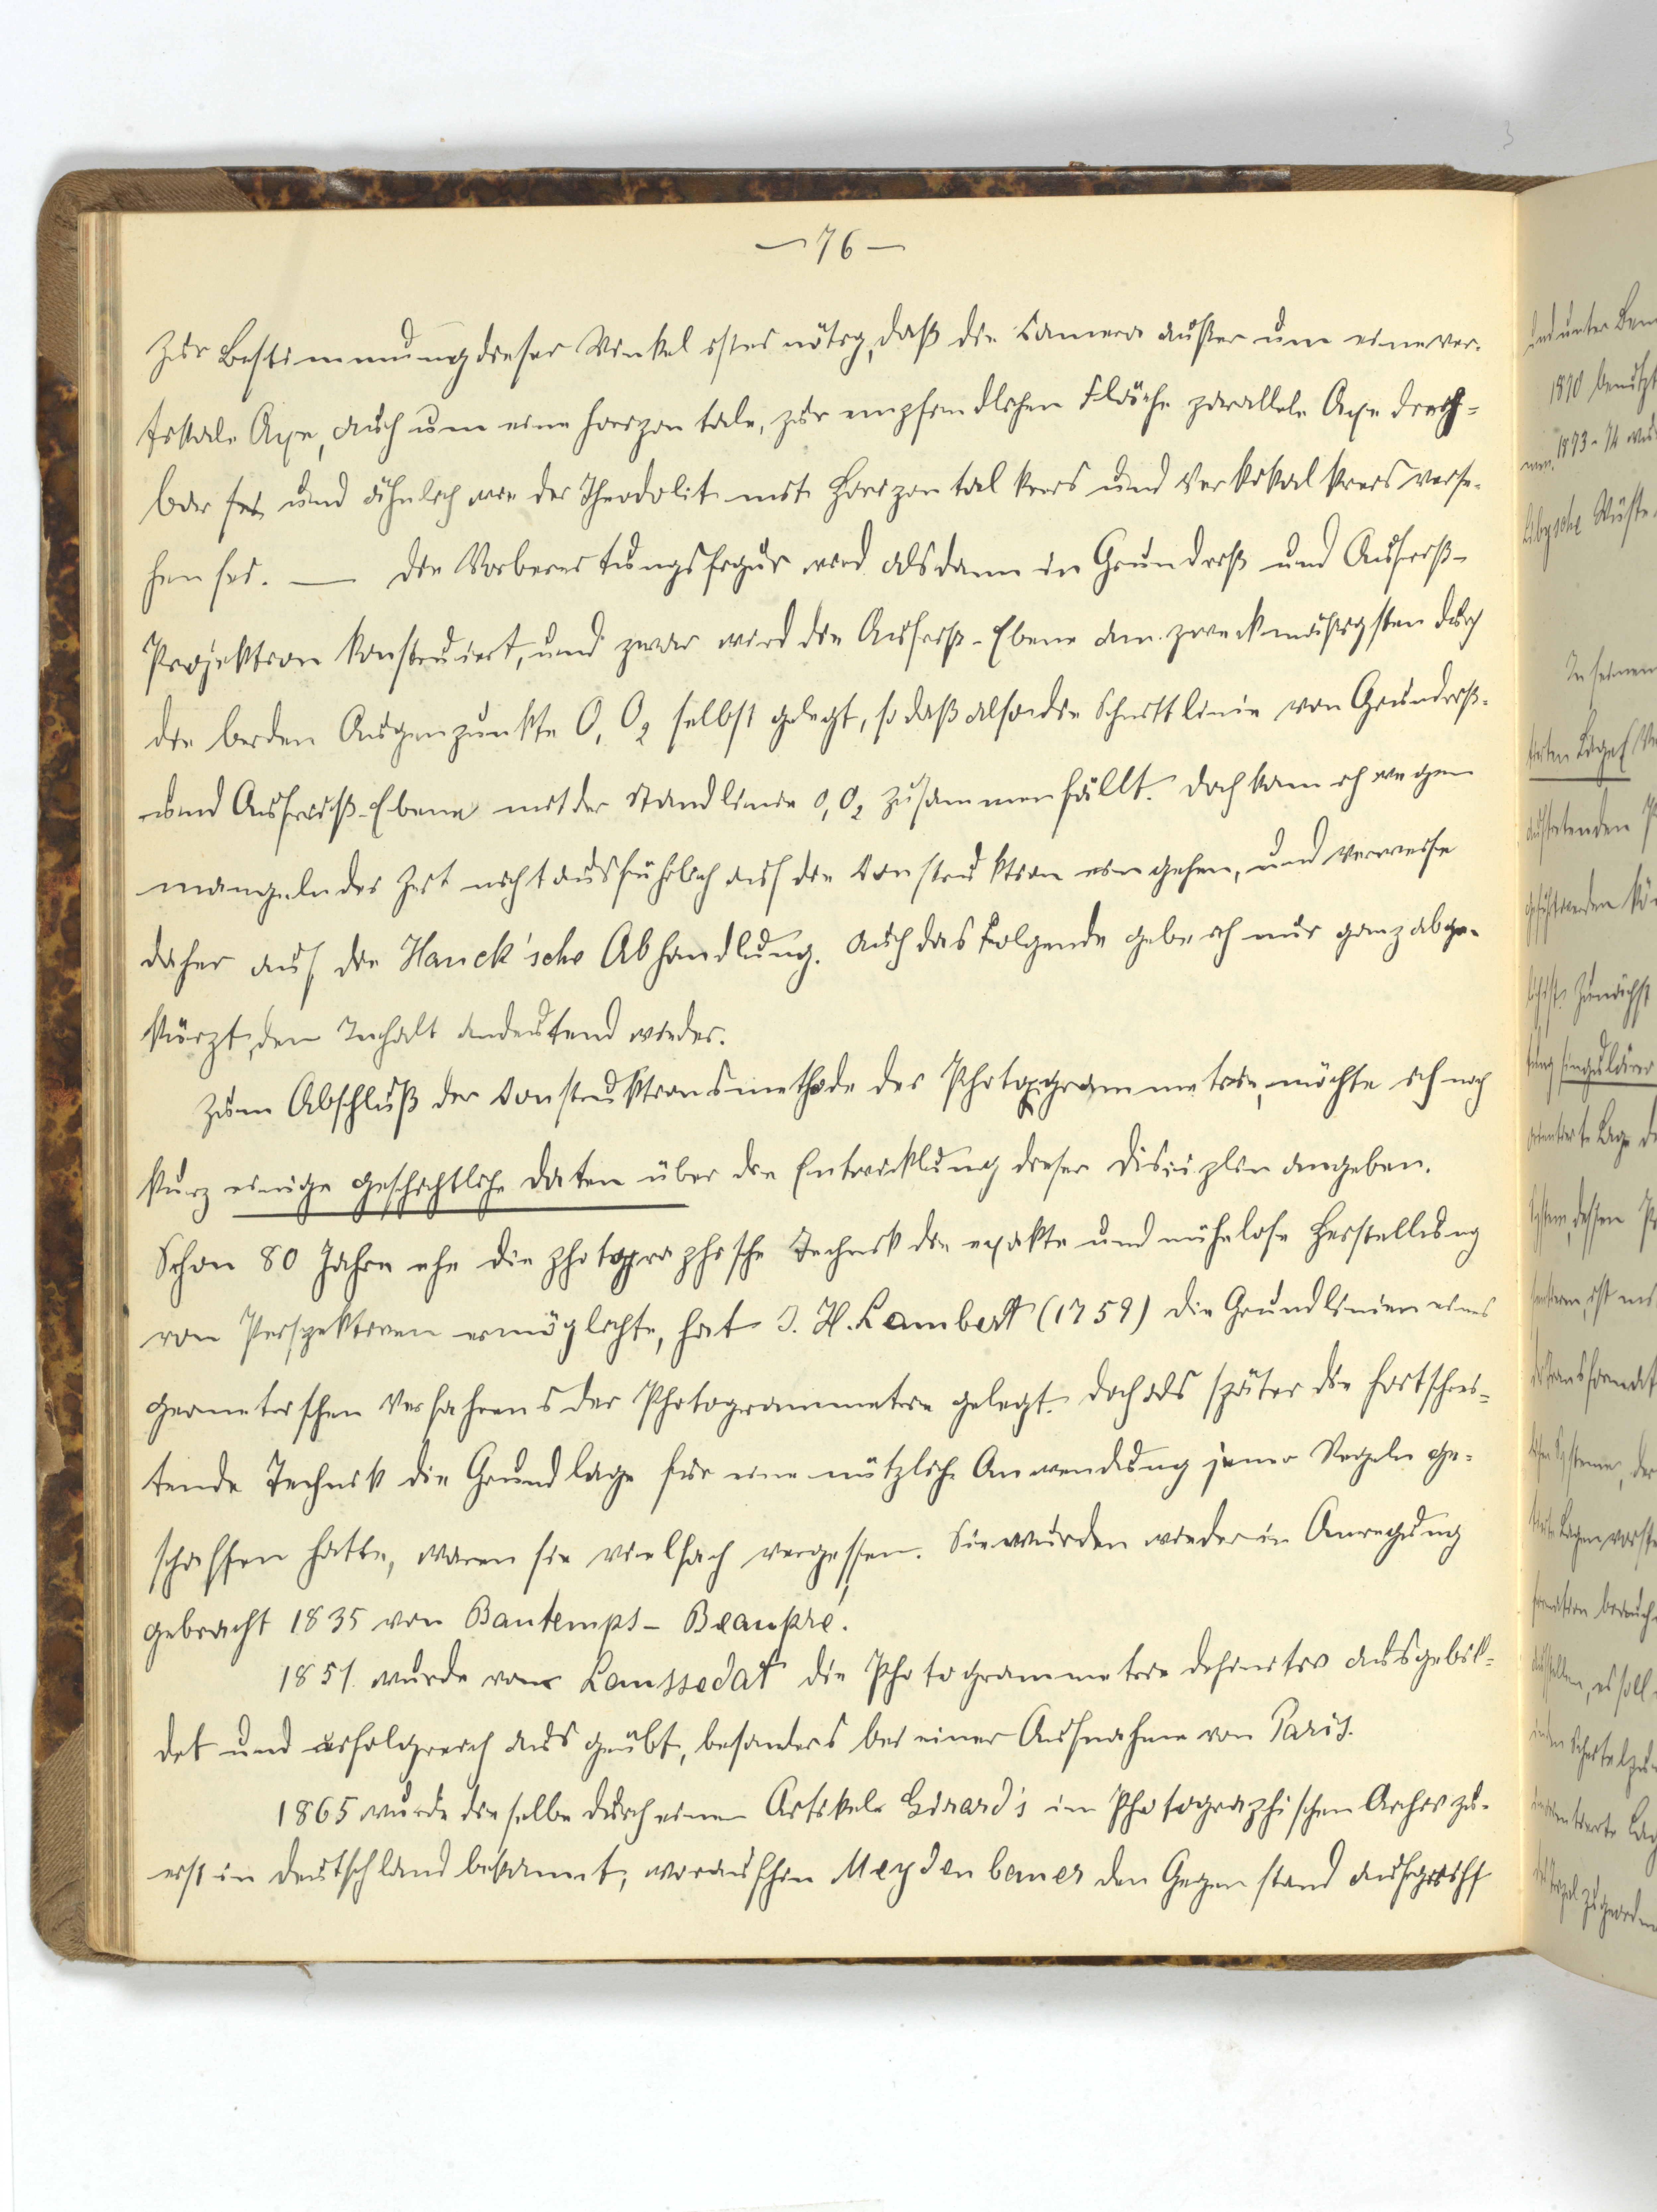 — 76 —
Zur Bestimmung dieser Winkel ist es nötig, daß die Camera außer um eine ver-
tikale Axe, auch um eine horizontale, zur empfindlichen Fläche parallele Axe dreh-
bar sei und ähnlich wie der Theodolit mit Horizontalkreis und Vertikalkreis verse-
hen sei. — Die Vorbereitungsfigur wird alsdann in Grundriß und Aufriß-
Projektion konstruiert, und zwar wird die Aufriß-Ebene am zweckmäßigsten durch
die beiden Augenpunkte O₁ O₂ selbst gelegt, so daß also die Schnittlinie von Grundriß-
und Aufriß-Ebene mit der Standlinie O₁ O₂ zusammenfällt. Doch kann ich wegen
mangelnder Zeit nicht ausführlich auf die Construktion eingehen, und verweise
daher auf die Hauck'sche Abhandlung. Auch das Folgende gebe ich nur ganz abge-
kürzt, den Inhalt andeutend wieder.
Zum Abschluß der Construktionsmethode der Photogrammetrie, möchte ich noch
kurz einige geschichtliche Daten über die Entwicklung dieser Disciplin angeben.
Schon 80 Jahre ehe die photographische Technik die exakte und mühelose Herstellung
von Perspektiven ermöglichte, hat J. H. Lambert (1759) die Grundlinien eines
geometrischen Verfahrens der Photogrammetrie gelegt. Doch als später die fortschrei-
tende Technik die Grundlage für eine nützliche Anwendung jener Regeln ge-
schaffen hatte, waren sie vielfach vergessen. Sie wurden wieder in Anregung
gebracht 1835 von Bautemps-Beaupré.
1851 wurde von Laussedat die Photogrammetrie definitiv ausgebil-
det und erfolgreich ausgeübt, besonders bei einer Aufnahme von Paris.
1865 wurde dieselbe durch einen Artikel Girard's im Photographischen Archiv zu-
erst in Deutschland bekannt, woraufhin Meydenbauer den Gegenstand aufgriff